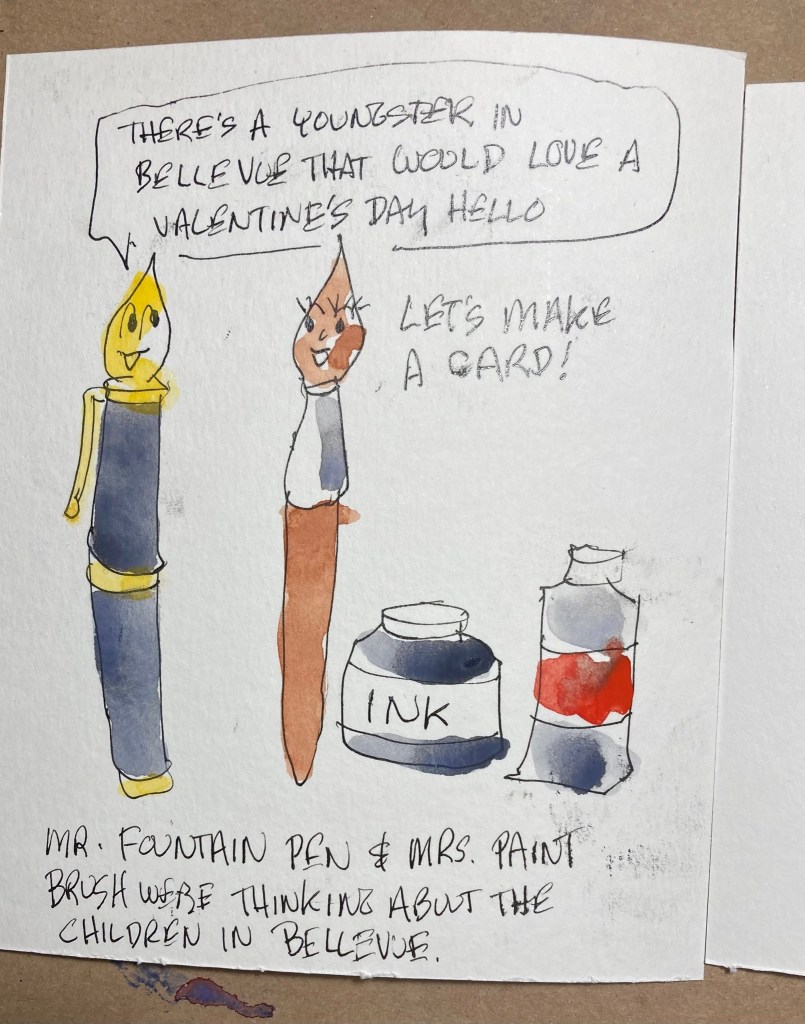 THERE'S A YOUNGSTER IN
BELLEVUE THAT WOULD LOVE A
VALENTINE'S DAY HELLO
LET'S MAKE
A CARD!
INK
MR. FOUNTAIN PEN & MRS. PAINT
BRUSH WERE THINKING ABOUT THE
CHILDREN IN BELLEVUE.